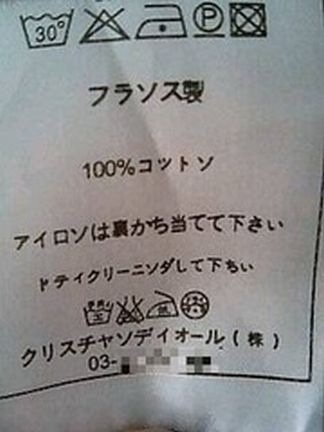 30°
P
フラソス製
100%コットソ
アイロソは裏かち当てて下さい
ドテイクリーニソダして下ちい
クリスチャソディオール(株)
03-